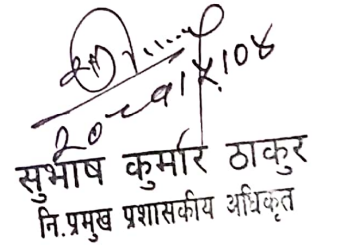 २०८१।५।०४
सुभाष कुमार ठाकुर
नि.प्रमुख प्रशासकीय अधिकृत